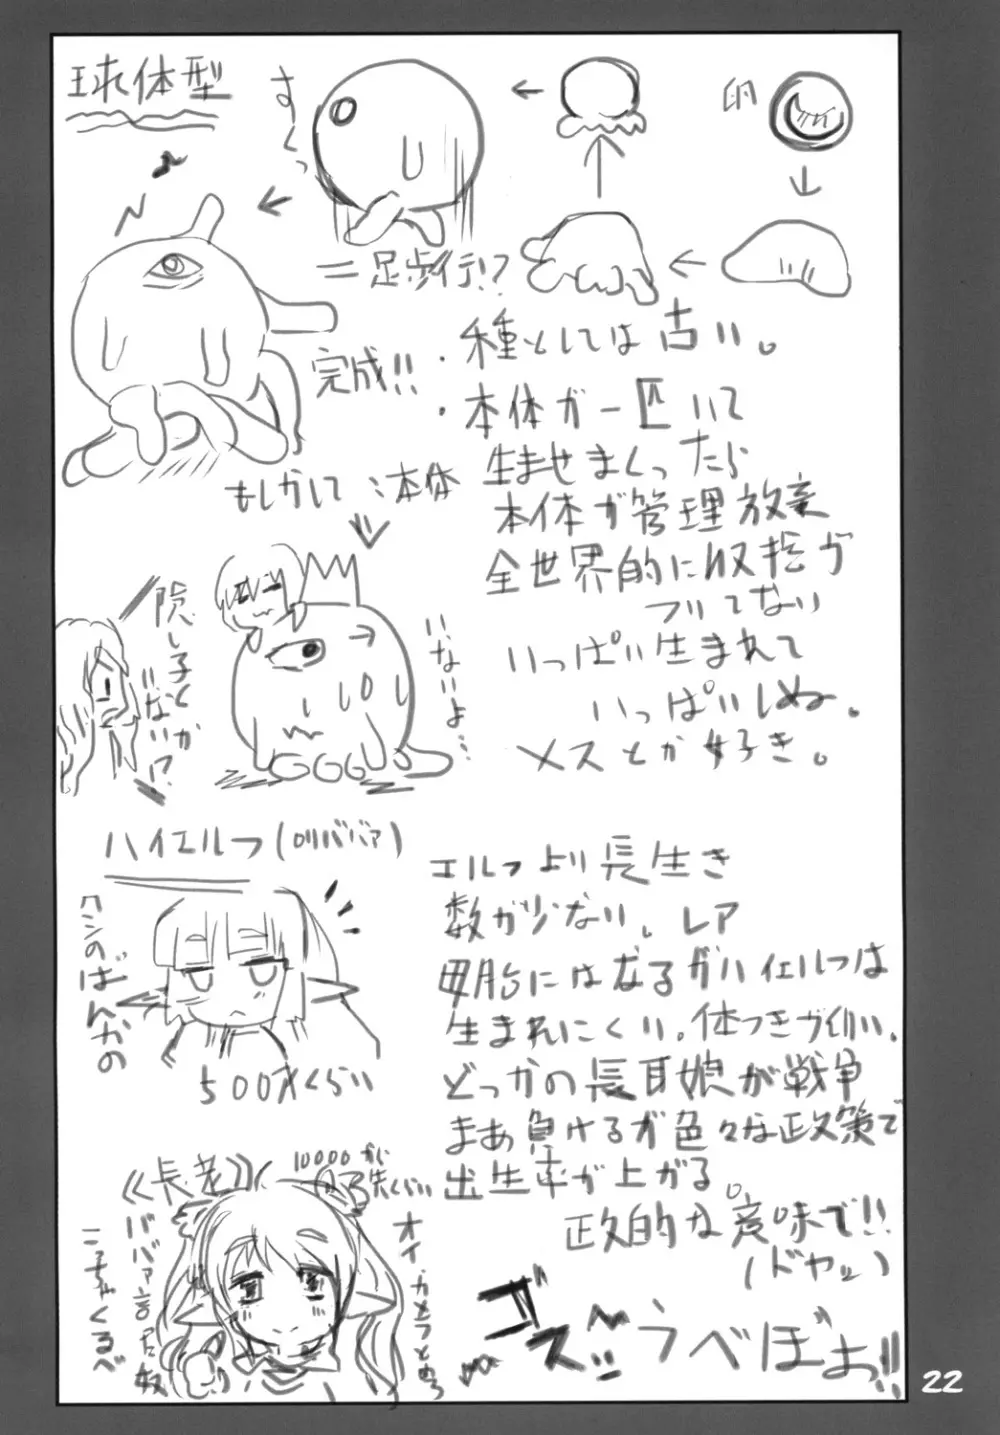 球体型
卵
すくっ
二足歩行!?
完成!!
・種としては古い。
・本体が一匹いて
生ませまくったら
本体が管理放棄
全世界的に収拾が
ついてない
いっぱい生まれて
いっぱいしぬ。
メスとか好き。
もしかして:本体
隠し子とか
いない!?
いないよ…
ハイエルフ(ロリババァ)
500才くらい
エルフより長生き
数が少ない。レア
母胎にはなるがハイエルフは
生まれにくい。体つきが幼い。
どっかの長耳娘が戦争
まあ負けるが色々な政策で
出生率が上がる。
政的な意味で!!
(ドヤッ)
《長老》
10000が
ババァ言う奴
こっちゃくるべ
ゴズッ
うべぼぉっ!!
22